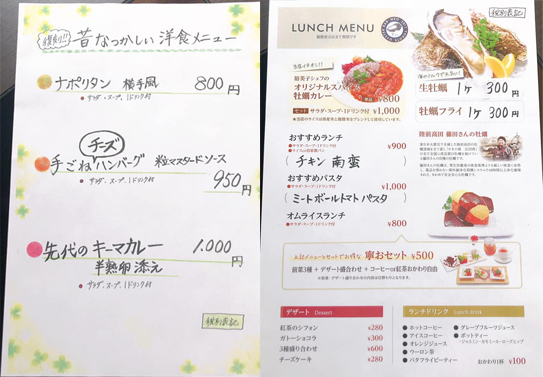 復刻!! 昔なつかしい洋食メニュー
ナポリタン 横手風 800円
・サラダ・スープ、1ドリンク付
チーズ
手ごねハンバーグ 粒マスタードソース
・サラダ・スープ、1ドリンク付 950円
先代のキーマカレー 1.000円
半熟卵添え
・サラダ・スープ、1ドリンク付
税別表記
税別表記
LUNCH MENU
オリジナルスパイス
牡蠣カレー ¥800
セット サラダ・スープ・1ドリンク付 ¥1,000
おすすめランチ
●サラダ・スープ・1ドリンク付 ¥900
(チキン南蛮)
おすすめパスタ
●サラダ・スープ・1ドリンク付 ¥1,000
(ミートボールトマトパスタ)
オムライスランチ
●サラダ・スープ・1ドリンク付 ¥800
生牡蠣 1ヶ 300円
牡蠣フライ 1ヶ 300円
陸前高田 藤田さんの牡蠣
上記メニューにセットでお得な 寧おセット ¥500
前菜3種 + デザート盛合わせ + コーヒーor紅茶おかわり自由
デザート Dessert
紅茶のシフォン ¥280
ガトーショコラ ¥300
3種盛り合わせ ¥600
チーズケーキ ¥280
ランチドリンク Lunch drink
●ホットコーヒー
●アイスコーヒー
●オレンジジュース
●ウーロン茶
●バタフライピーティー
●グレープフルーツジュース
●ポットティー
おかわり1杯 ¥100